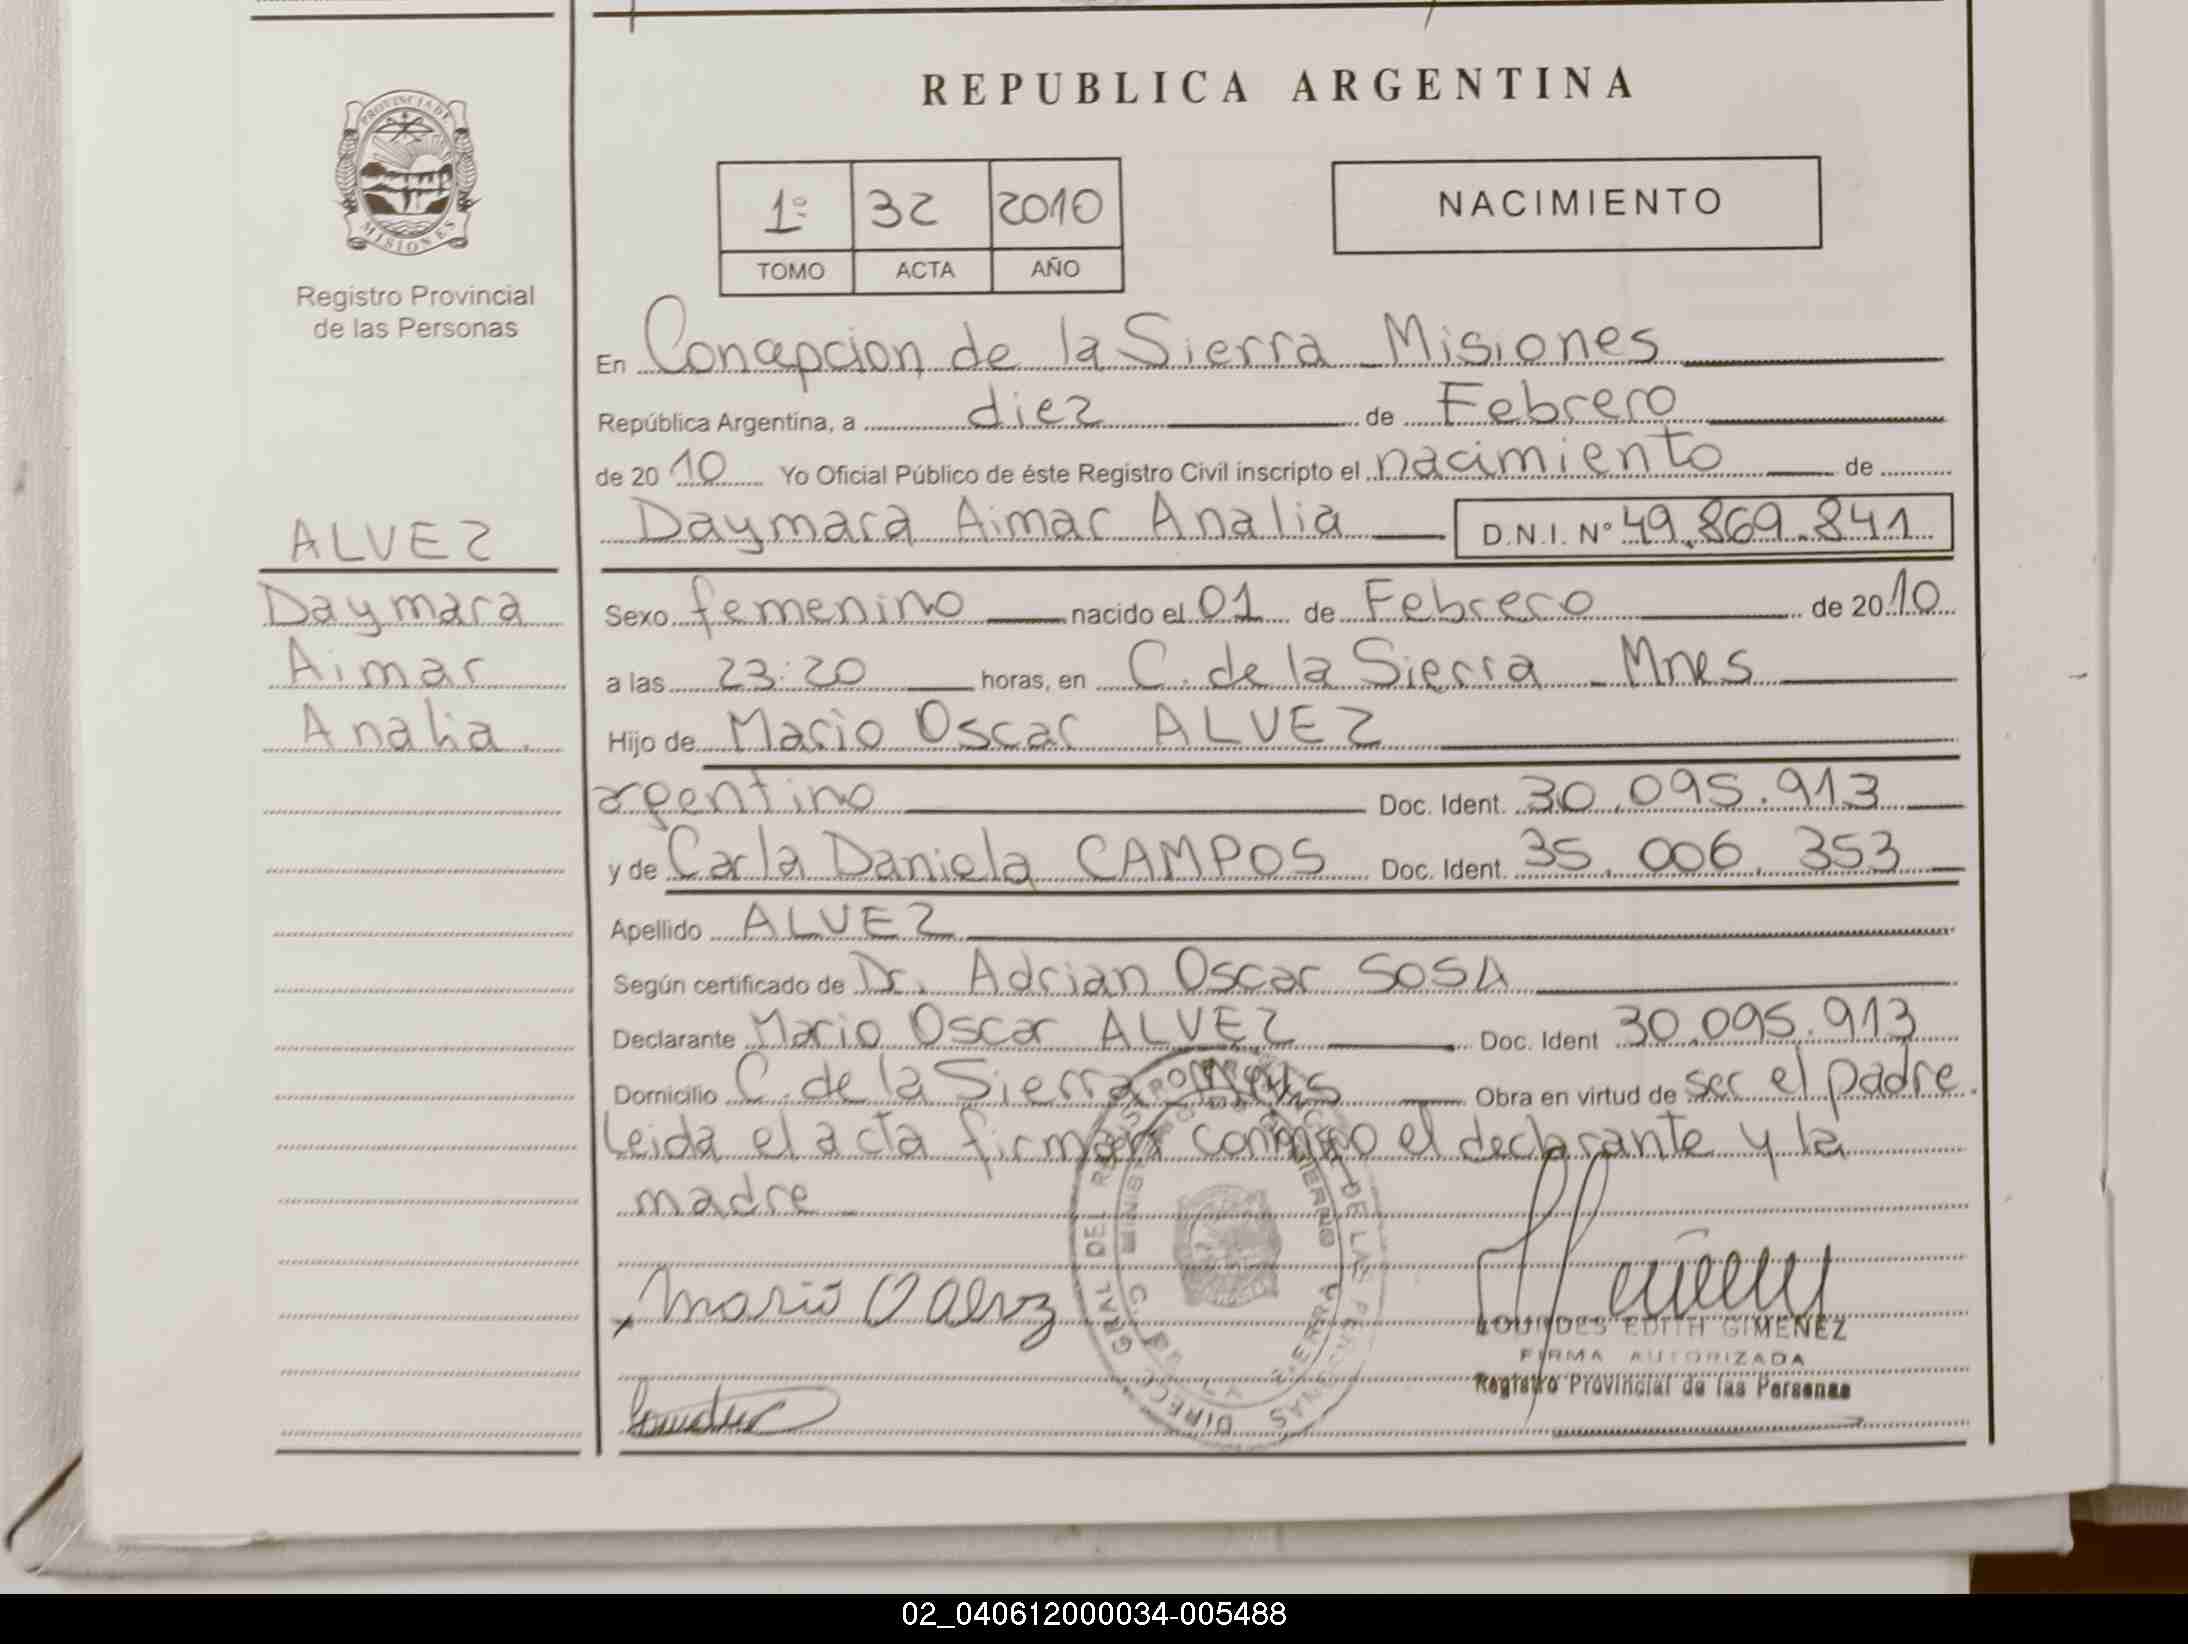 REPUBLICA ARGENTINA
PROVINCIA DE
MISIONES
Registro Provincial
de las Personas
1º 32 2010
TOMO ACTA AÑO
NACIMIENTO
En Concepcion de la Sierra - Misiones
República Argentina, a diez de Febrero
de 2010 Yo Oficial Público de éste Registro Civil inscripto el nacimiento de
Daymara Aimar Analia D.N.I. Nº 49.869.841
ALVEZ
Daymara
Aimar
Analia.
Sexo femenino nacido el 01 de Febrero de 2010
a las 23:20 horas, en C. de la Sierra - Mnes
Hijo de Mario Oscar ALVEZ
argentino Doc. Ident. 30.095.913
y de Carla Daniela CAMPOS Doc. Ident. 35.006.353
Apellido ALVEZ
Según certificado de Dr. Adrian Oscar SOSA
Declarante Mario Oscar ALVEZ Doc. Ident 30.095.913
Domicilio C. de la Sierra Mnes Obra en virtud de ser el padre.
Leida el acta firman conmigo el declarante y la
madre -
Mario O Alvez
LOURDES EDITH GIMENEZ
FIRMA AUTORIZADA
Registro Provincial de las Personas
02_040612000034-005488